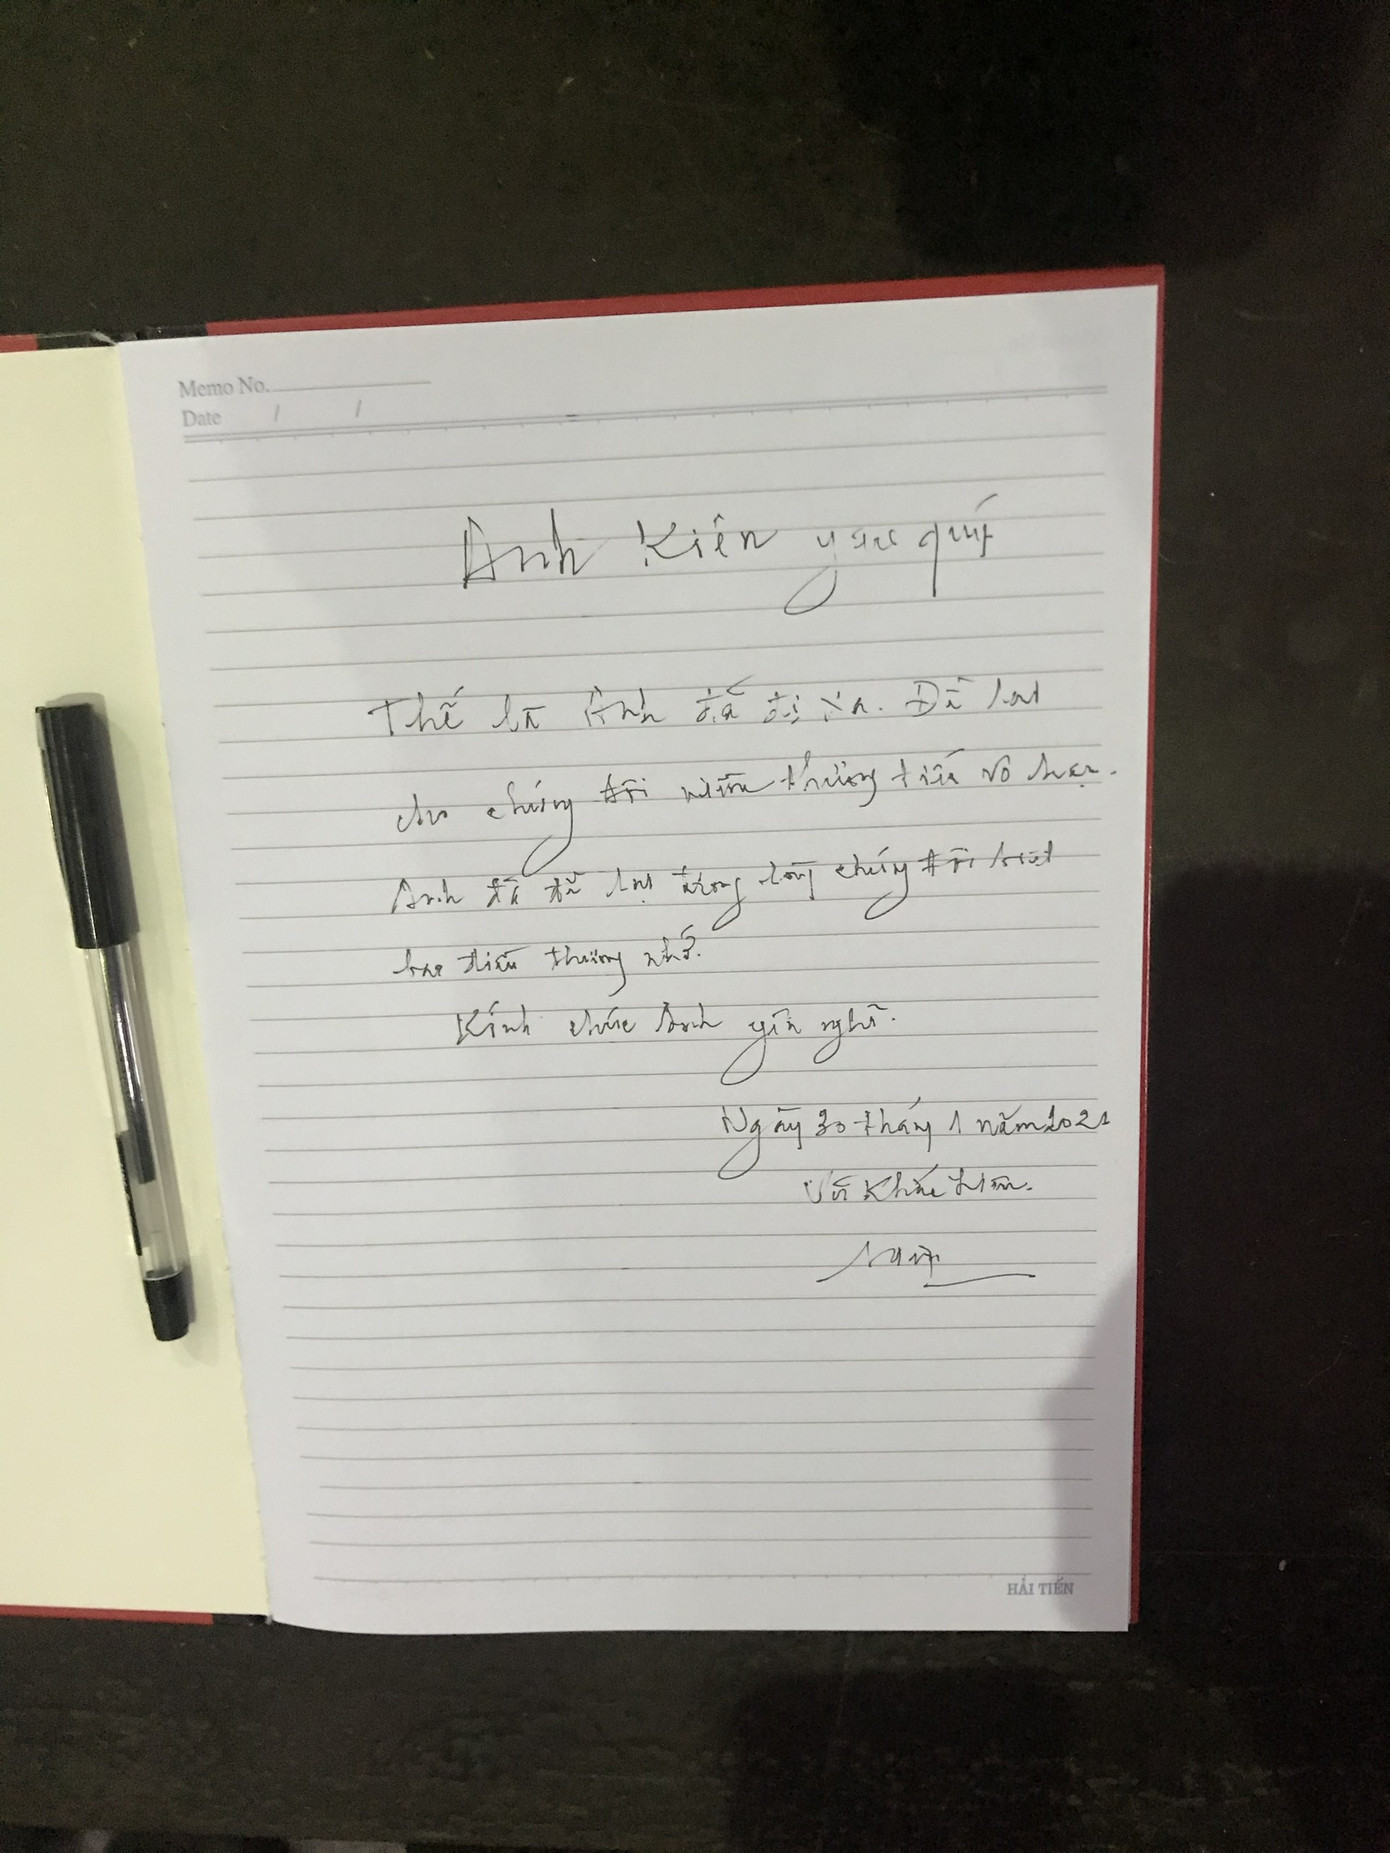 Memo No.
Date / /
Anh Kiên yêu quý
Thế là Anh đã đi xa. Để lại
cho chúng tôi niềm thương tiếc vô hạn.
Anh đã để lại trong lòng chúng tôi biết
bao điều thương nhớ.
Kính chúc Anh yên nghỉ.
Ngày 30 tháng 1 năm 2021
Vũ Khắc
HẢI TIẾN